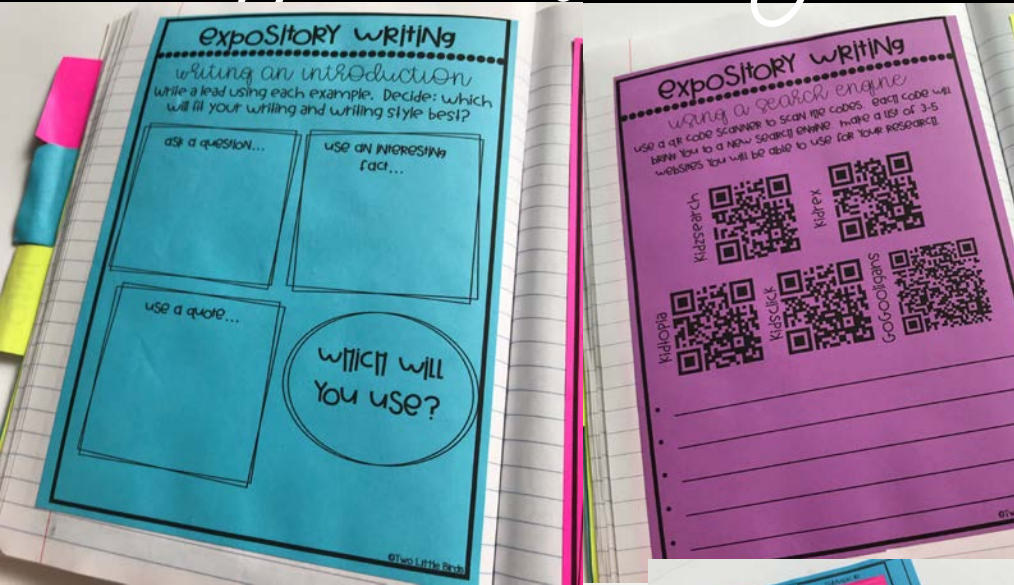 expository writing
writing an introduction
write a lead using each example. Decide: which
will fit your writing and writing style best?
ask a question...
use an interesting
fact...
use a quote...
which will
you use?
©Two Little Birds
expository writing
using a search engine
use a qr code scanner to scan the codes. each code will
bring you to a new search engine. make a list of 3-5
websites you will be able to use for your research.
Kidzsearch
Kidrex
Kidtopia
Kidsclick
GoGooligans